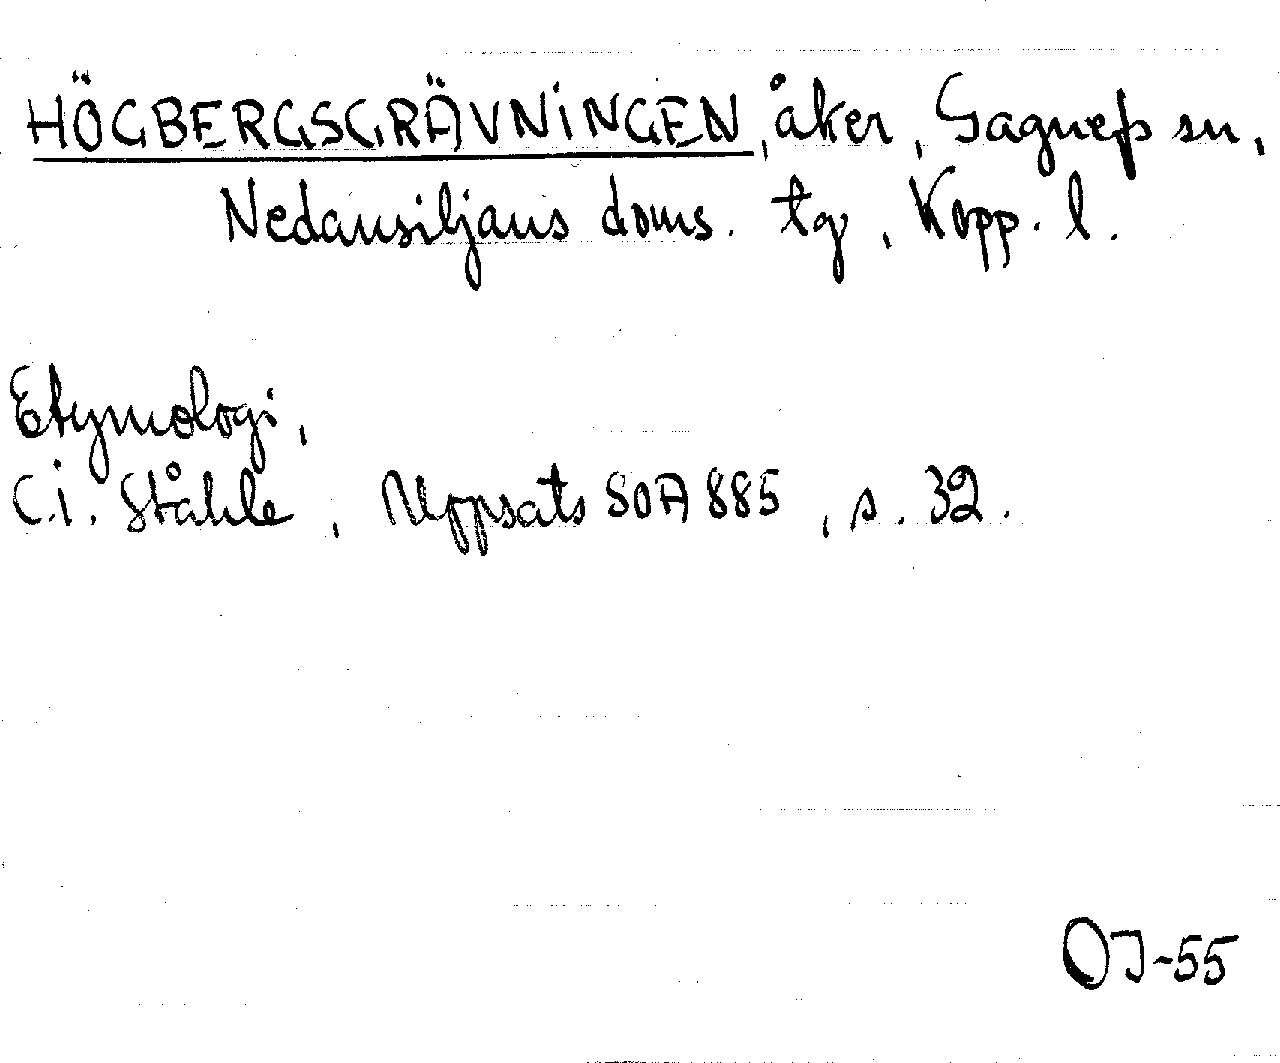 HÖGBERGSGRÄVNINGEN, åker, Gagnefs sn,
Nedansiljans doms. tg, Kopp. l.
Etymologi,
C.I. Ståhle, Uppsats SOA 885, s. 32.
OJ-55